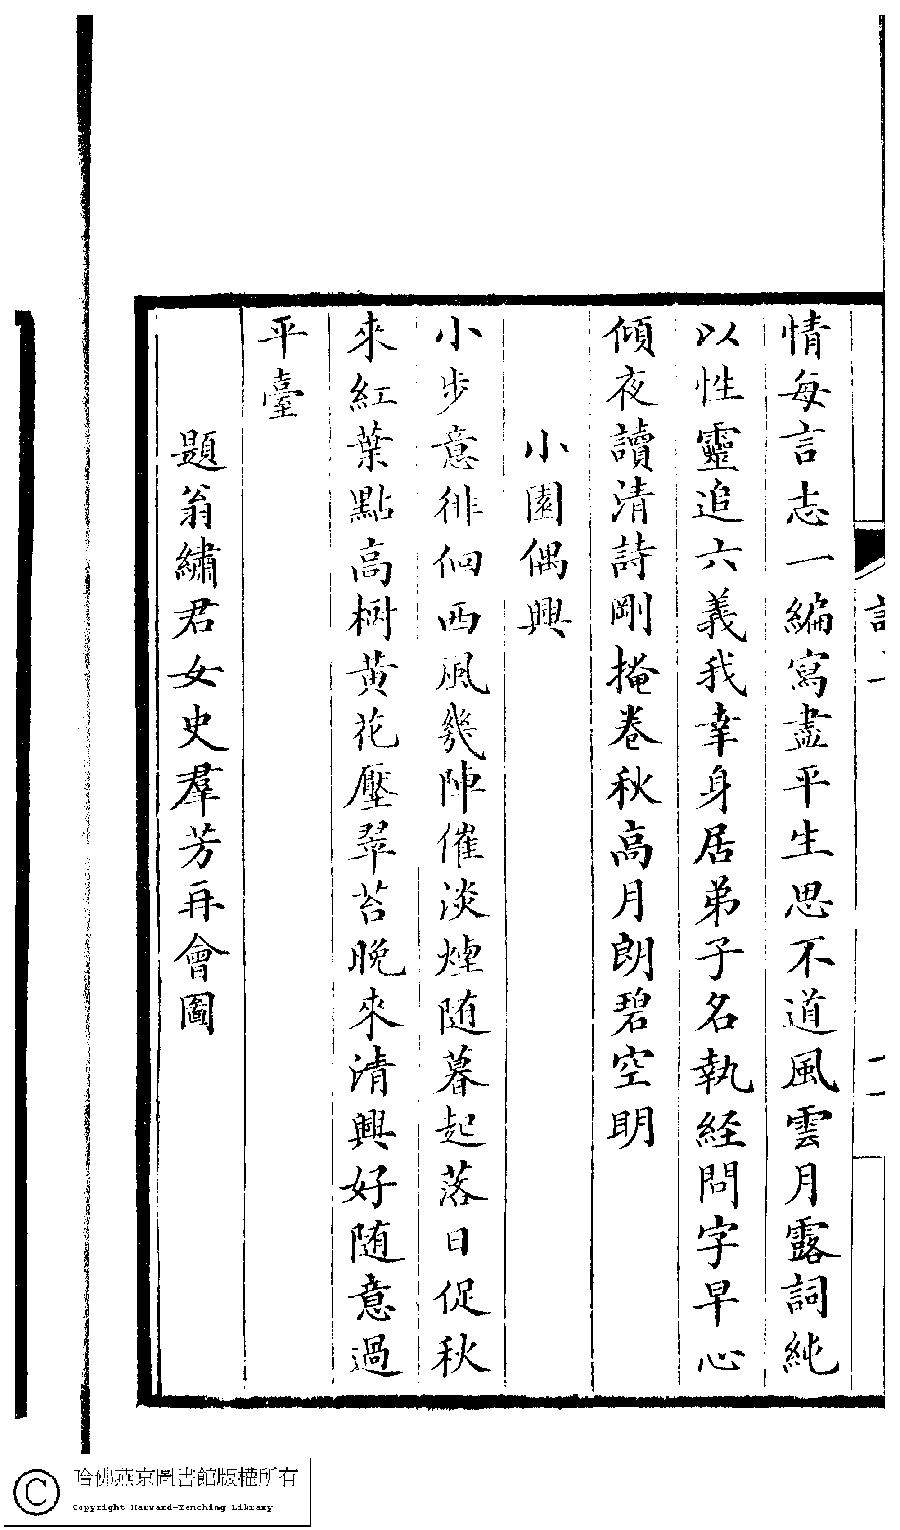 情每言志一編寫盡平生思不道風雲月露詞純
以性靈追六義我幸身居弟子名執經問字早心
傾夜讀清詩剛掩卷秋高月朗碧空明
小園偶興
小步意徘徊西風幾陣催淡煙隨暮起落日促秋
來紅葉點高樹黃花壓翠苔晚來清興好隨意過
平臺
題翁繡君女史羣芳再會圖
哈佛燕京圖書館版權所有
Copyright Harvard-Yenching Library